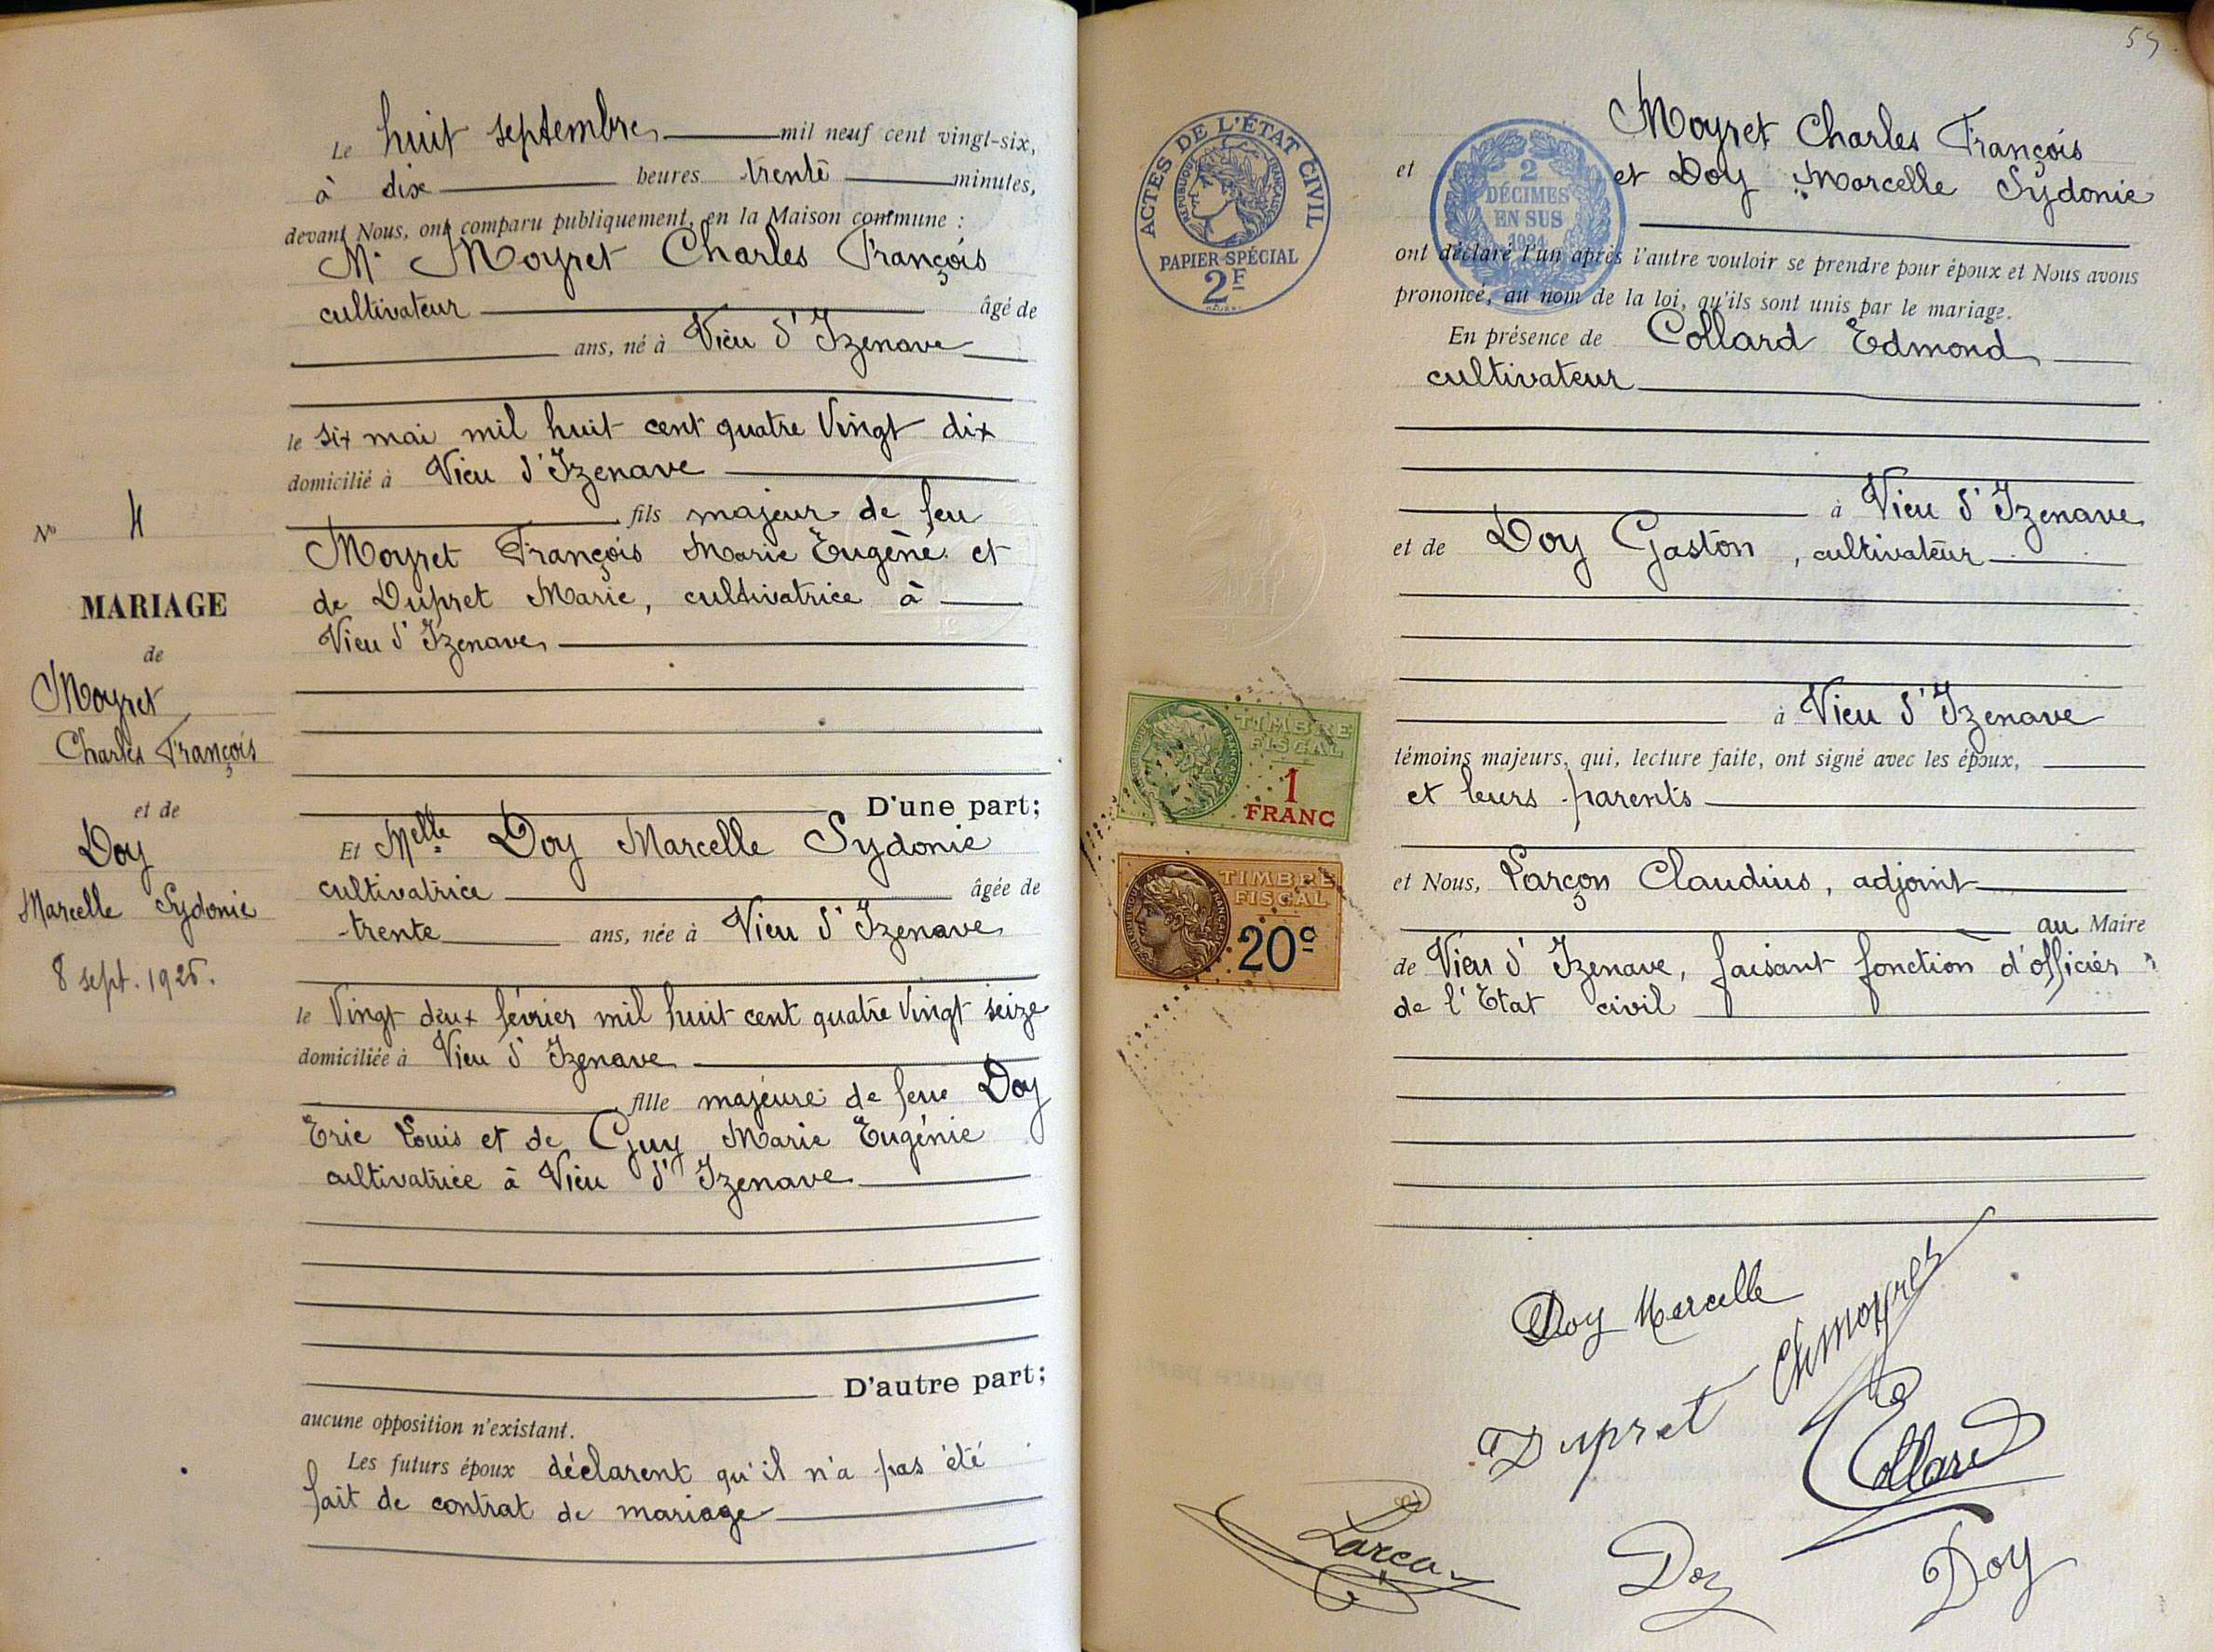 N° 4
MARIAGE
de
Moyret
Charles François
et de
Doy
Marcelle Sydonie
8 sept. 1926.
Le huit septembre mil neuf cent vingt-six,
à dix heures trente minutes,
devant Nous, ont comparu publiquement, en la Maison commune :
Mr Moyret Charles François
cultivateur âgé de
ans, né à Vieu d'Izenave
le six mai mil huit cent quatre Vingt dix
domicilié à Vieu d'Izenave
fils majeur de feu
Moyret François Marie Eugène et
de Dupret Marie, cultivatrice à
Vieu d'Izenave
D'une part;
Et Melle Doy Marcelle Sydonie
cultivatrice âgée de
trente ans, née à Vieu d'Izenave
le Vingt deux février mil huit cent quatre Vingt seize
domiciliée à Vieu d'Izenave
fille majeure de feu Doy
Eric Louis et de Guy Marie Eugénie
cultivatrice à Vieu d'Izenave
D'autre part;
aucune opposition n'existant.
Les futurs époux déclarent qu'il n'a pas été
fait de contrat de mariage
ACTES DE L'ÉTAT CIVIL
RÉPUBLIQUE FRANÇAISE
PAPIER SPÉCIAL
2F
2
DÉCIMES
EN SUS
1924
TIMBRE
FISCAL
1
FRANC
TIMBRE
FISCAL
20c
et Moyret Charles François
et Doy Marcelle Sydonie
ont déclaré l'un après l'autre vouloir se prendre pour époux et Nous avons
prononcé, au nom de la loi, qu'ils sont unis par le mariage.
En présence de Collard Edmond
cultivateur
à Vieu d'Izenave
et de Doy Gaston, cultivateur
à Vieu d'Izenave
témoins majeurs, qui, lecture faite, ont signé avec les époux,
et leurs parents
et Nous, Larçon Claudius, adjoint
au Maire
de Vieu d'Izenave, faisant fonction d'officier
de l'Etat civil
Doy Marcelle
Ch Moyret
Dupret
Collard
Larçon
Doy
Doy